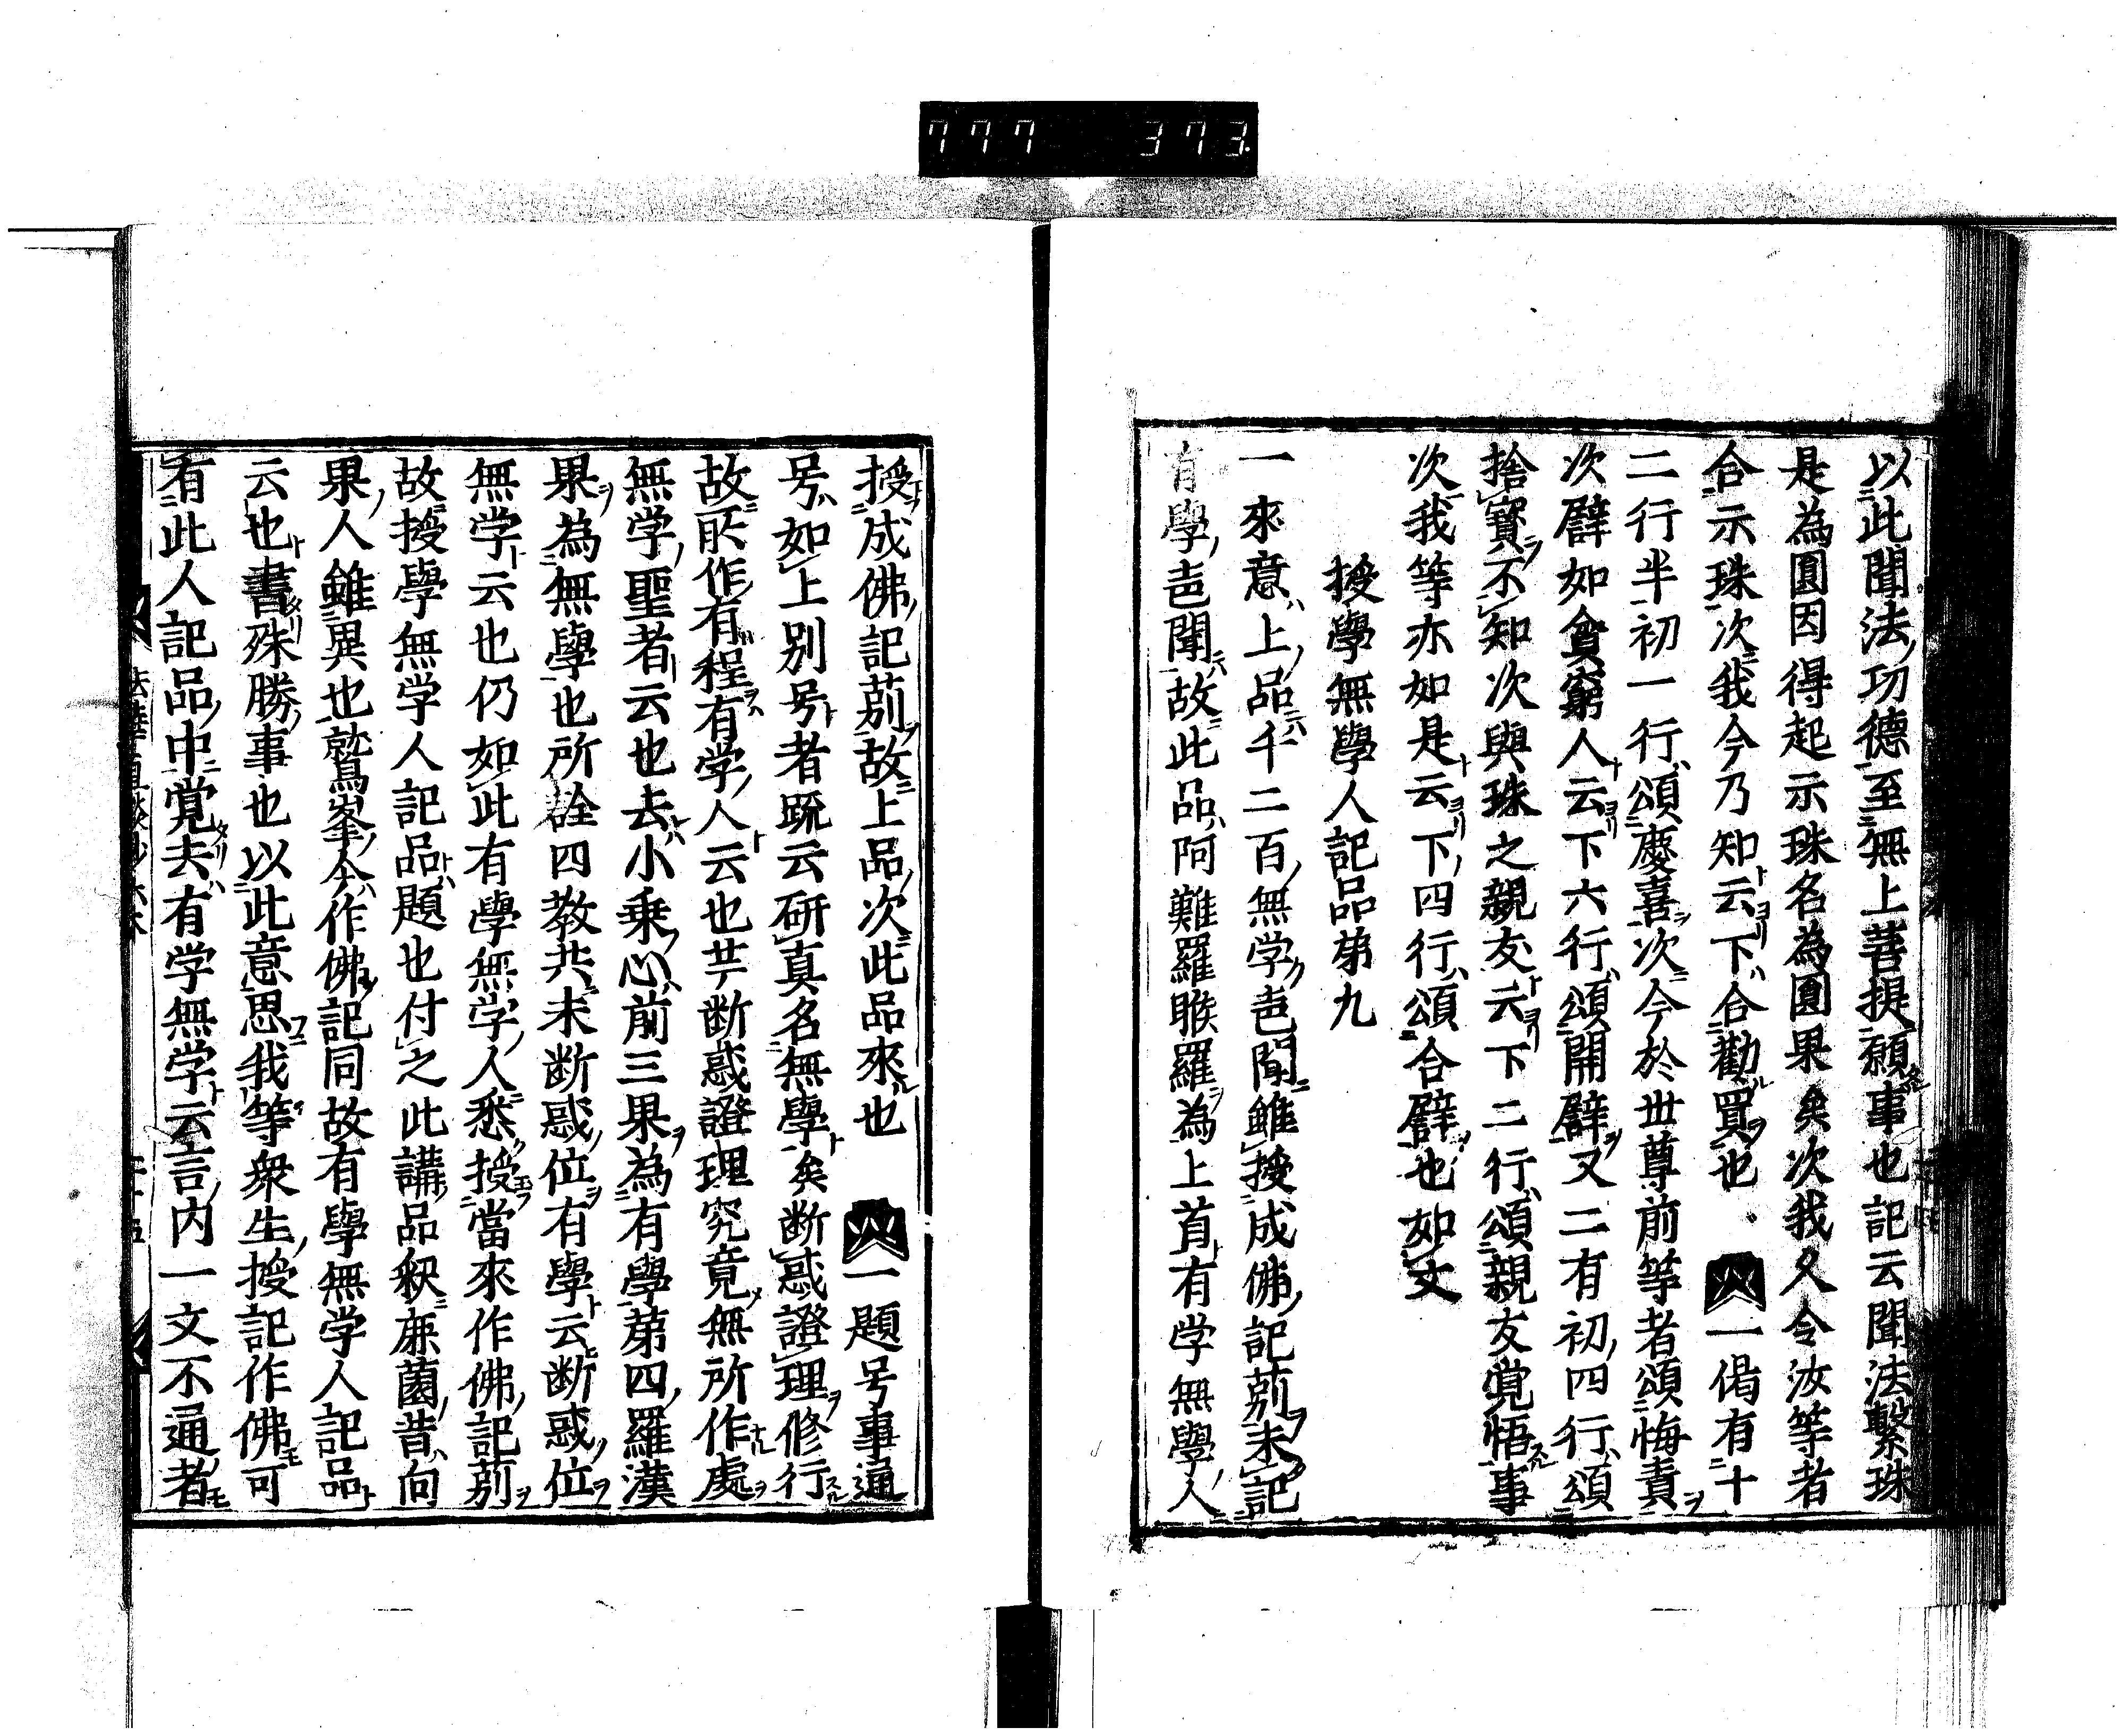 777 373
以此聞法功德至無上菩提願事也記云聞法繫珠
是為圓因得起示珠名為圓果矣次我久令汝等者
合示珠次我今乃知云下合勸買也 一偈有十
二行半初一行頌慶喜次今於世尊前等者頌悔責
次譬如貧窮人云下六行頌開譬又二有初四行頌
捨寶不知次與珠之親友云下二行頌親友覚悟事
次我等亦如是云下四行頌合譬也如文
授學無學人記品第九
一來意上品千二百無学声聞雖授成佛記莂未記
有學声聞故此品阿難羅睺羅為上首有学無學人
授成佛記莂故上品次此品來也 一題号事通
号如上別号者䟽云研真名無學矣断惑證理修行
故所作有程有学人云也廿断惑證理究竟無所作處
無学聖者云也去小乗心前三果為有學第四羅漢
果為無學也所詮四教共未断惑位有學云断惑位
無学云也仍如此有學無学人悉授當來作佛記莂
故授學無学人記品題也付之此講品釈鹿薗昔向
果人雖異也鷲峯今作佛記同故有學無学人記品
云也書殊勝事也以此意思我等衆生授記作佛可
有此人記品中覚去有学無学云言内一文不通者